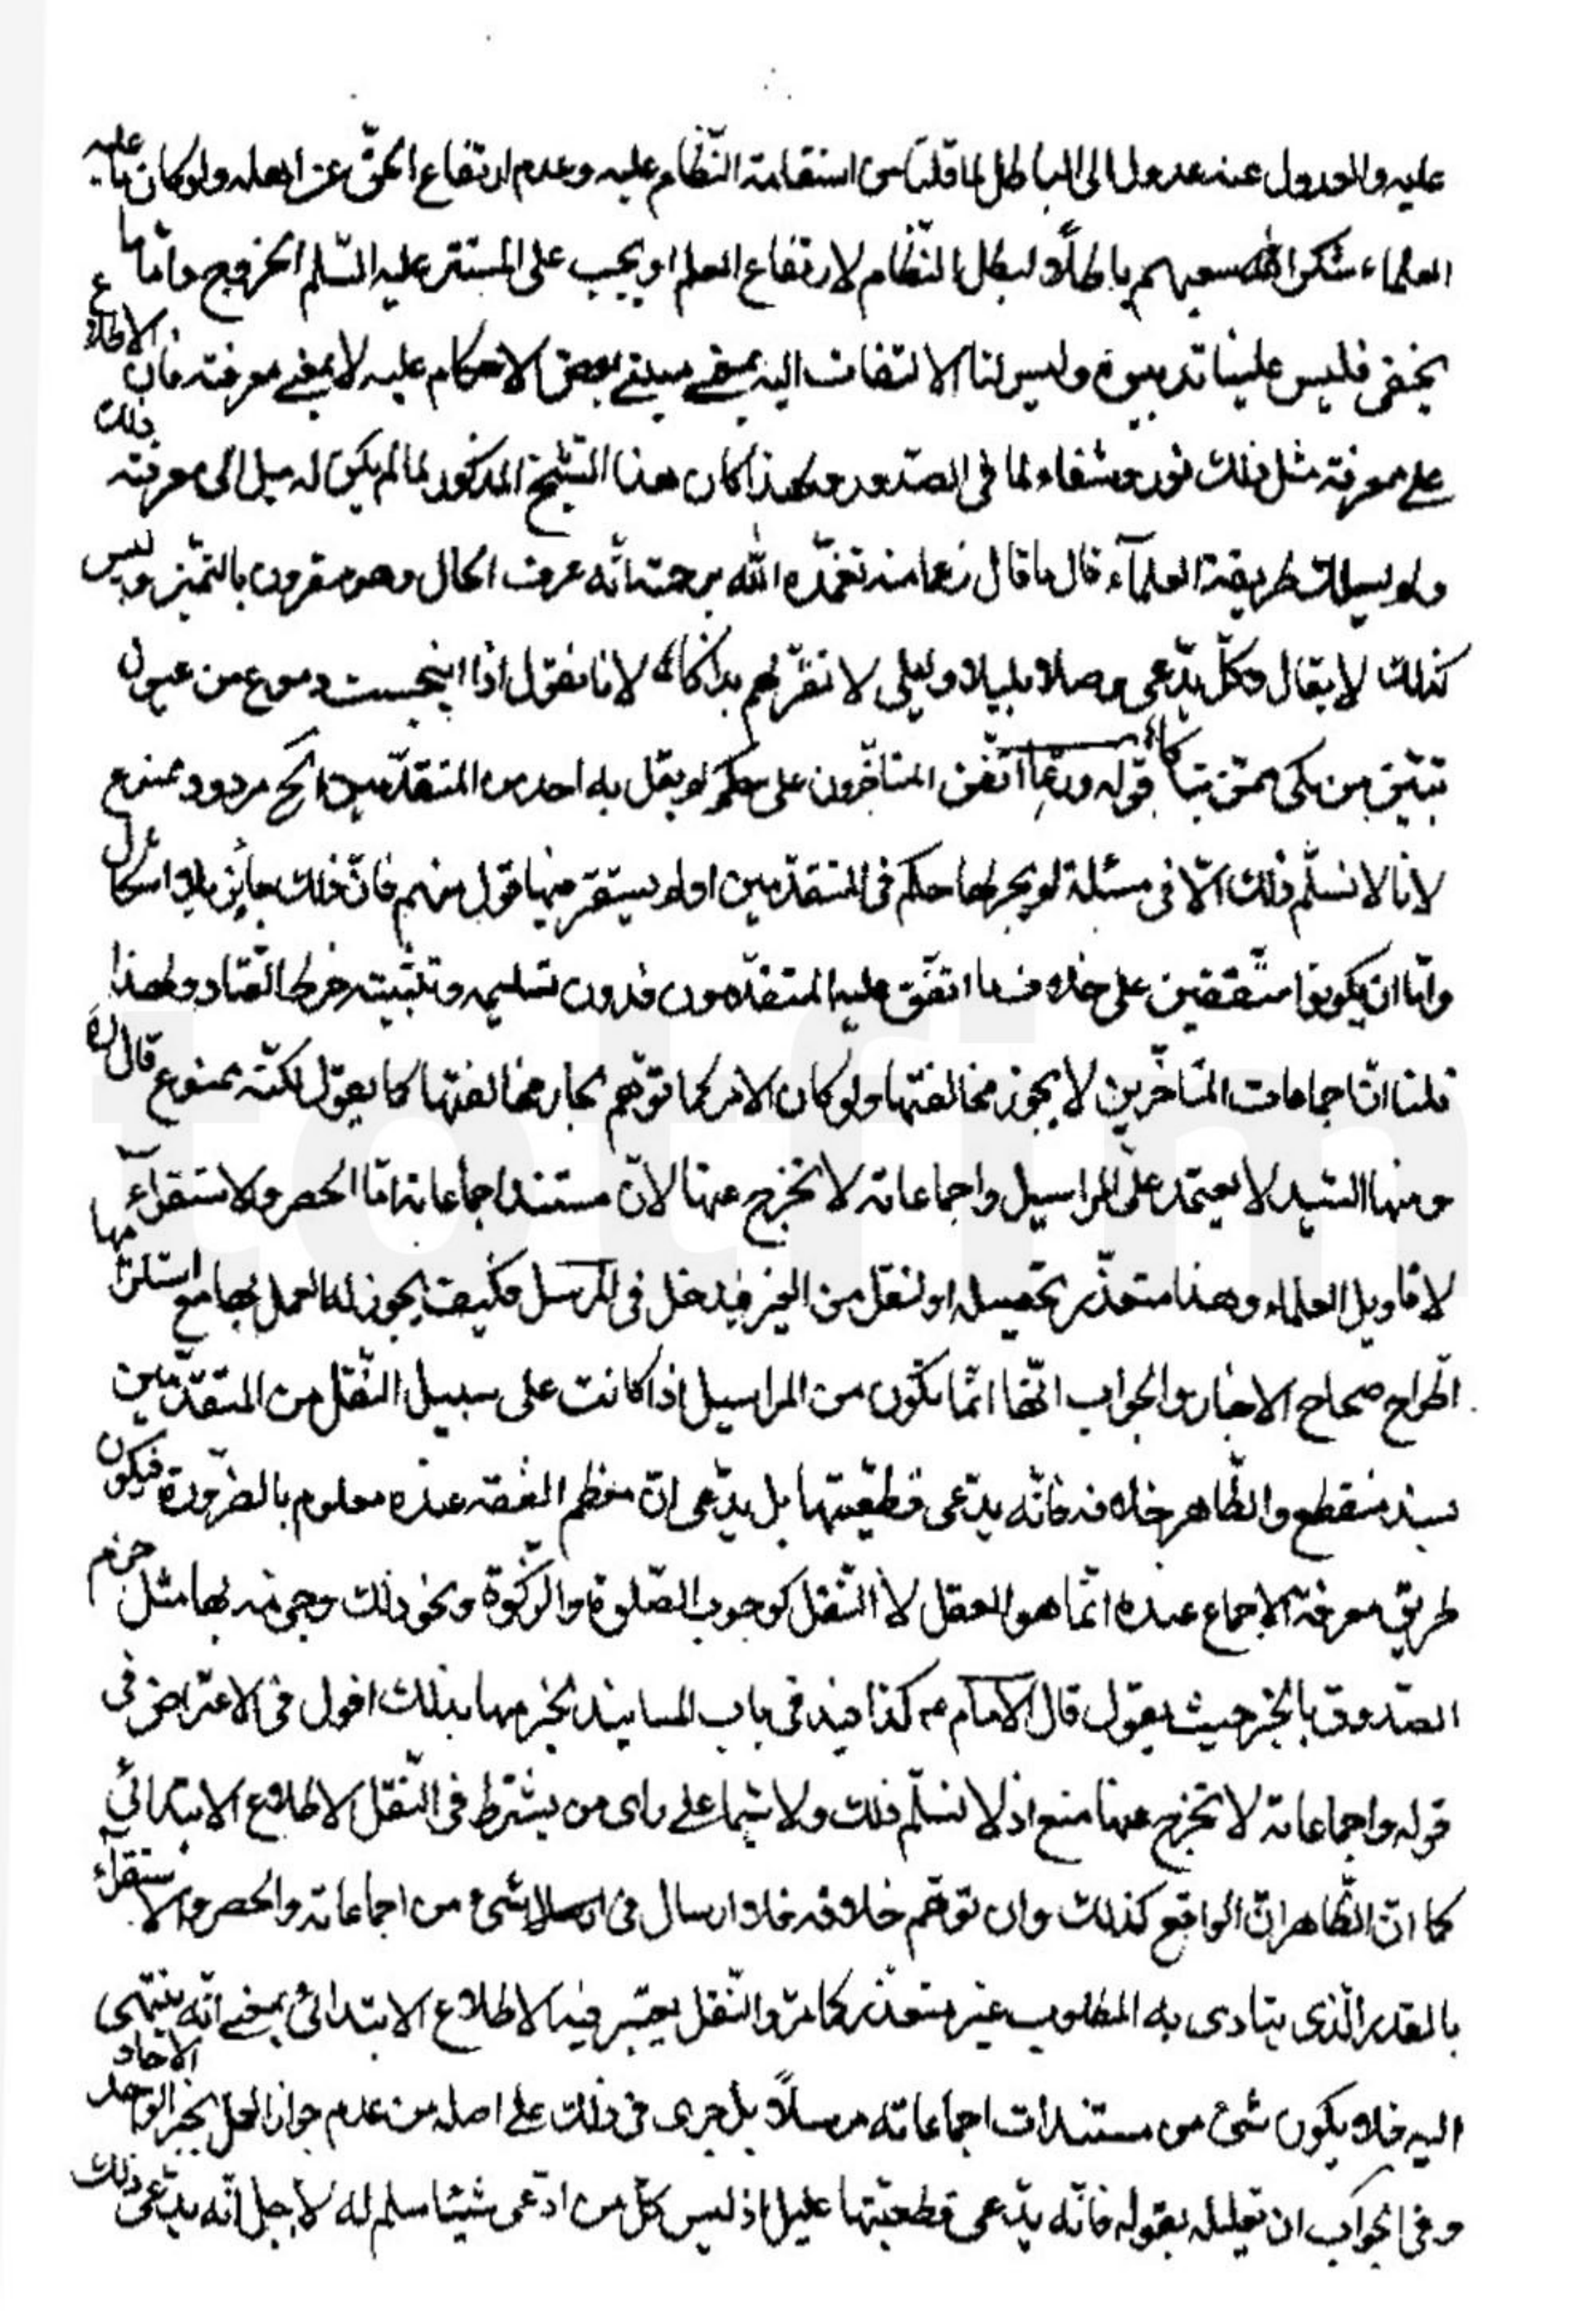 عليه والعدول عنه عدول الى الباطل لما قلنا من استقامة النّظام عليه وعدم ارتفاع الحقّ عن اهله ولو كان ما عليه
العلماء شكر الله سعيهم باطلاً لبطل النّظام لارتفاع العلم او يجب على المستتر عليه السّلم الخروج وامّا ما
يخفى فليس علينا تدبيره وليس لنا الالتفات اليه بمعنى مبنى بعض الاحكام عليه لا بمعنى معرفته فان الاطلاع
على معرفة مثل ذلك نور وشفاء لما فى الصّدور ولهذا كان هذا الشّيخ المذكور لما لم يكن له ميل الى معرفته ذلك
ولم يسلك طريقة العلمآء قال ما قال زعما منه تغمّده الله برحمته انّه عرف الحال وهو مقرون بالتميّز وليس
كذلك لا يقال وكلّ يدّعى وصلا بليلا وليلى لا تقرّ لهم بذاكا لانا نقول اذا انبجست دموع من عيون
تبيّن من بكى ممّن تباكا قوله وربّما اتّفق المتاخّرون على حكم لم يقل به احد من المتقدّمين الخ مردود ممنوع
لانا لا نسلّم ذلك الّا فى مسئلة لم يجر لها حكم فى المتقدّمين او لم يستقر فيها قول منهم فانّ ذلك جائز بلا اشكال
وامّا ان يكونوا متّفقين على خلاف ما اتّفق عليه المتقدّمون فدون تسليمه وتثبيته خرط القتاد ولهذا
قلنا انّ اجماعات المتاخّرين لا يجوز مخالفتها ولو كان الامر كما توّهم لجاز مخالفتها كما يقول لكنّه ممنوع قال ره
ومنها السّيد لا يعتمد على المراسيل واجماعاته لا تخرج عنها لانّ مستند اجماعاته امّا الحصر والاستقرآء
لاقاويل العلماء وهذا متعذّر تحصيله او لنقل من الغير فيدخل فى المرسل فكيف يجوز له العمل بها مع استلزامها
اطّراح صحاح الاخبار والجواب انّها انّما تكون من المراسيل اذا كانت على سبيل النّقل من المتقدّمين
بسند منقطع والظّاهر خلافه فانّه يدّعى قطعيّتها بل يدّعى انّ معظم الفقه عنده معلوم بالضّرورة فيكون
طريق معرفة الاجماع عنده انّما هو العقل لا النّقل كوجوب الصّلوة والزّكوة ونحو ذلك وجزمه بها مثل جزم
الصّدوق بالخبر حيث يقول قال الامام ع كذا فيه فى باب المسانيد لجزمها بذلك اقول فى الاعتراض فى
قوله واجماعاته لا تخرج عنها منع اذ لا نسلّم ذلك ولا سيّما على راى من يشترط فى النّقل الاطلاع الابتدائى
كما انّ الظّاهر انّ الواقع كذلك وان توّهم خلافه فلا ارسال فى شىء من اجماعاته والحصر والاستقرآء
بالقدر الّذى يتادى به المطلوب غير متعذّر كما مرّ والنّقل يعتبر فيه الاطلاع الابتدائى بمعنى انّه ينتهى
اليه فلا يكون شىء من مستندات اجماعاته مرسلاً بل جرى فى ذلك على اصله من عدم جواز العمل بخبر الواحد الاحاد
وفى الجواب ان تعليله بقوله فانّه يدّعى قطعيّتها عليل اذ ليس كلّ من ادّعى شيئا سلم له لاجل انّه يدّعى ذلك